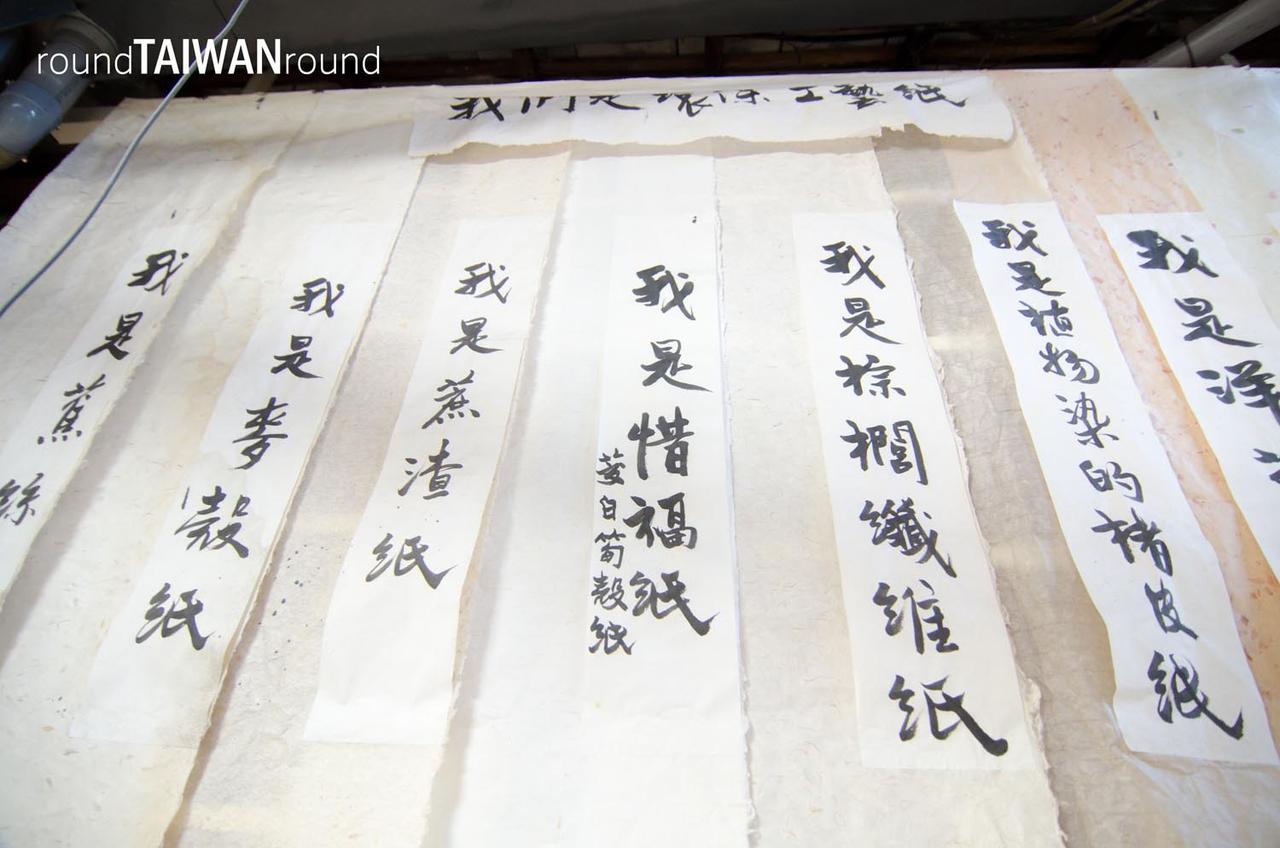 roundTAIWANround
我們是環保工藝紙
我是蕉絲
我是麥殼紙
我是蔗渣紙
我是惜福紙
茭白筍殼紙
我是棕櫚纖維紙
我是植物染的楮皮紙
我是洋